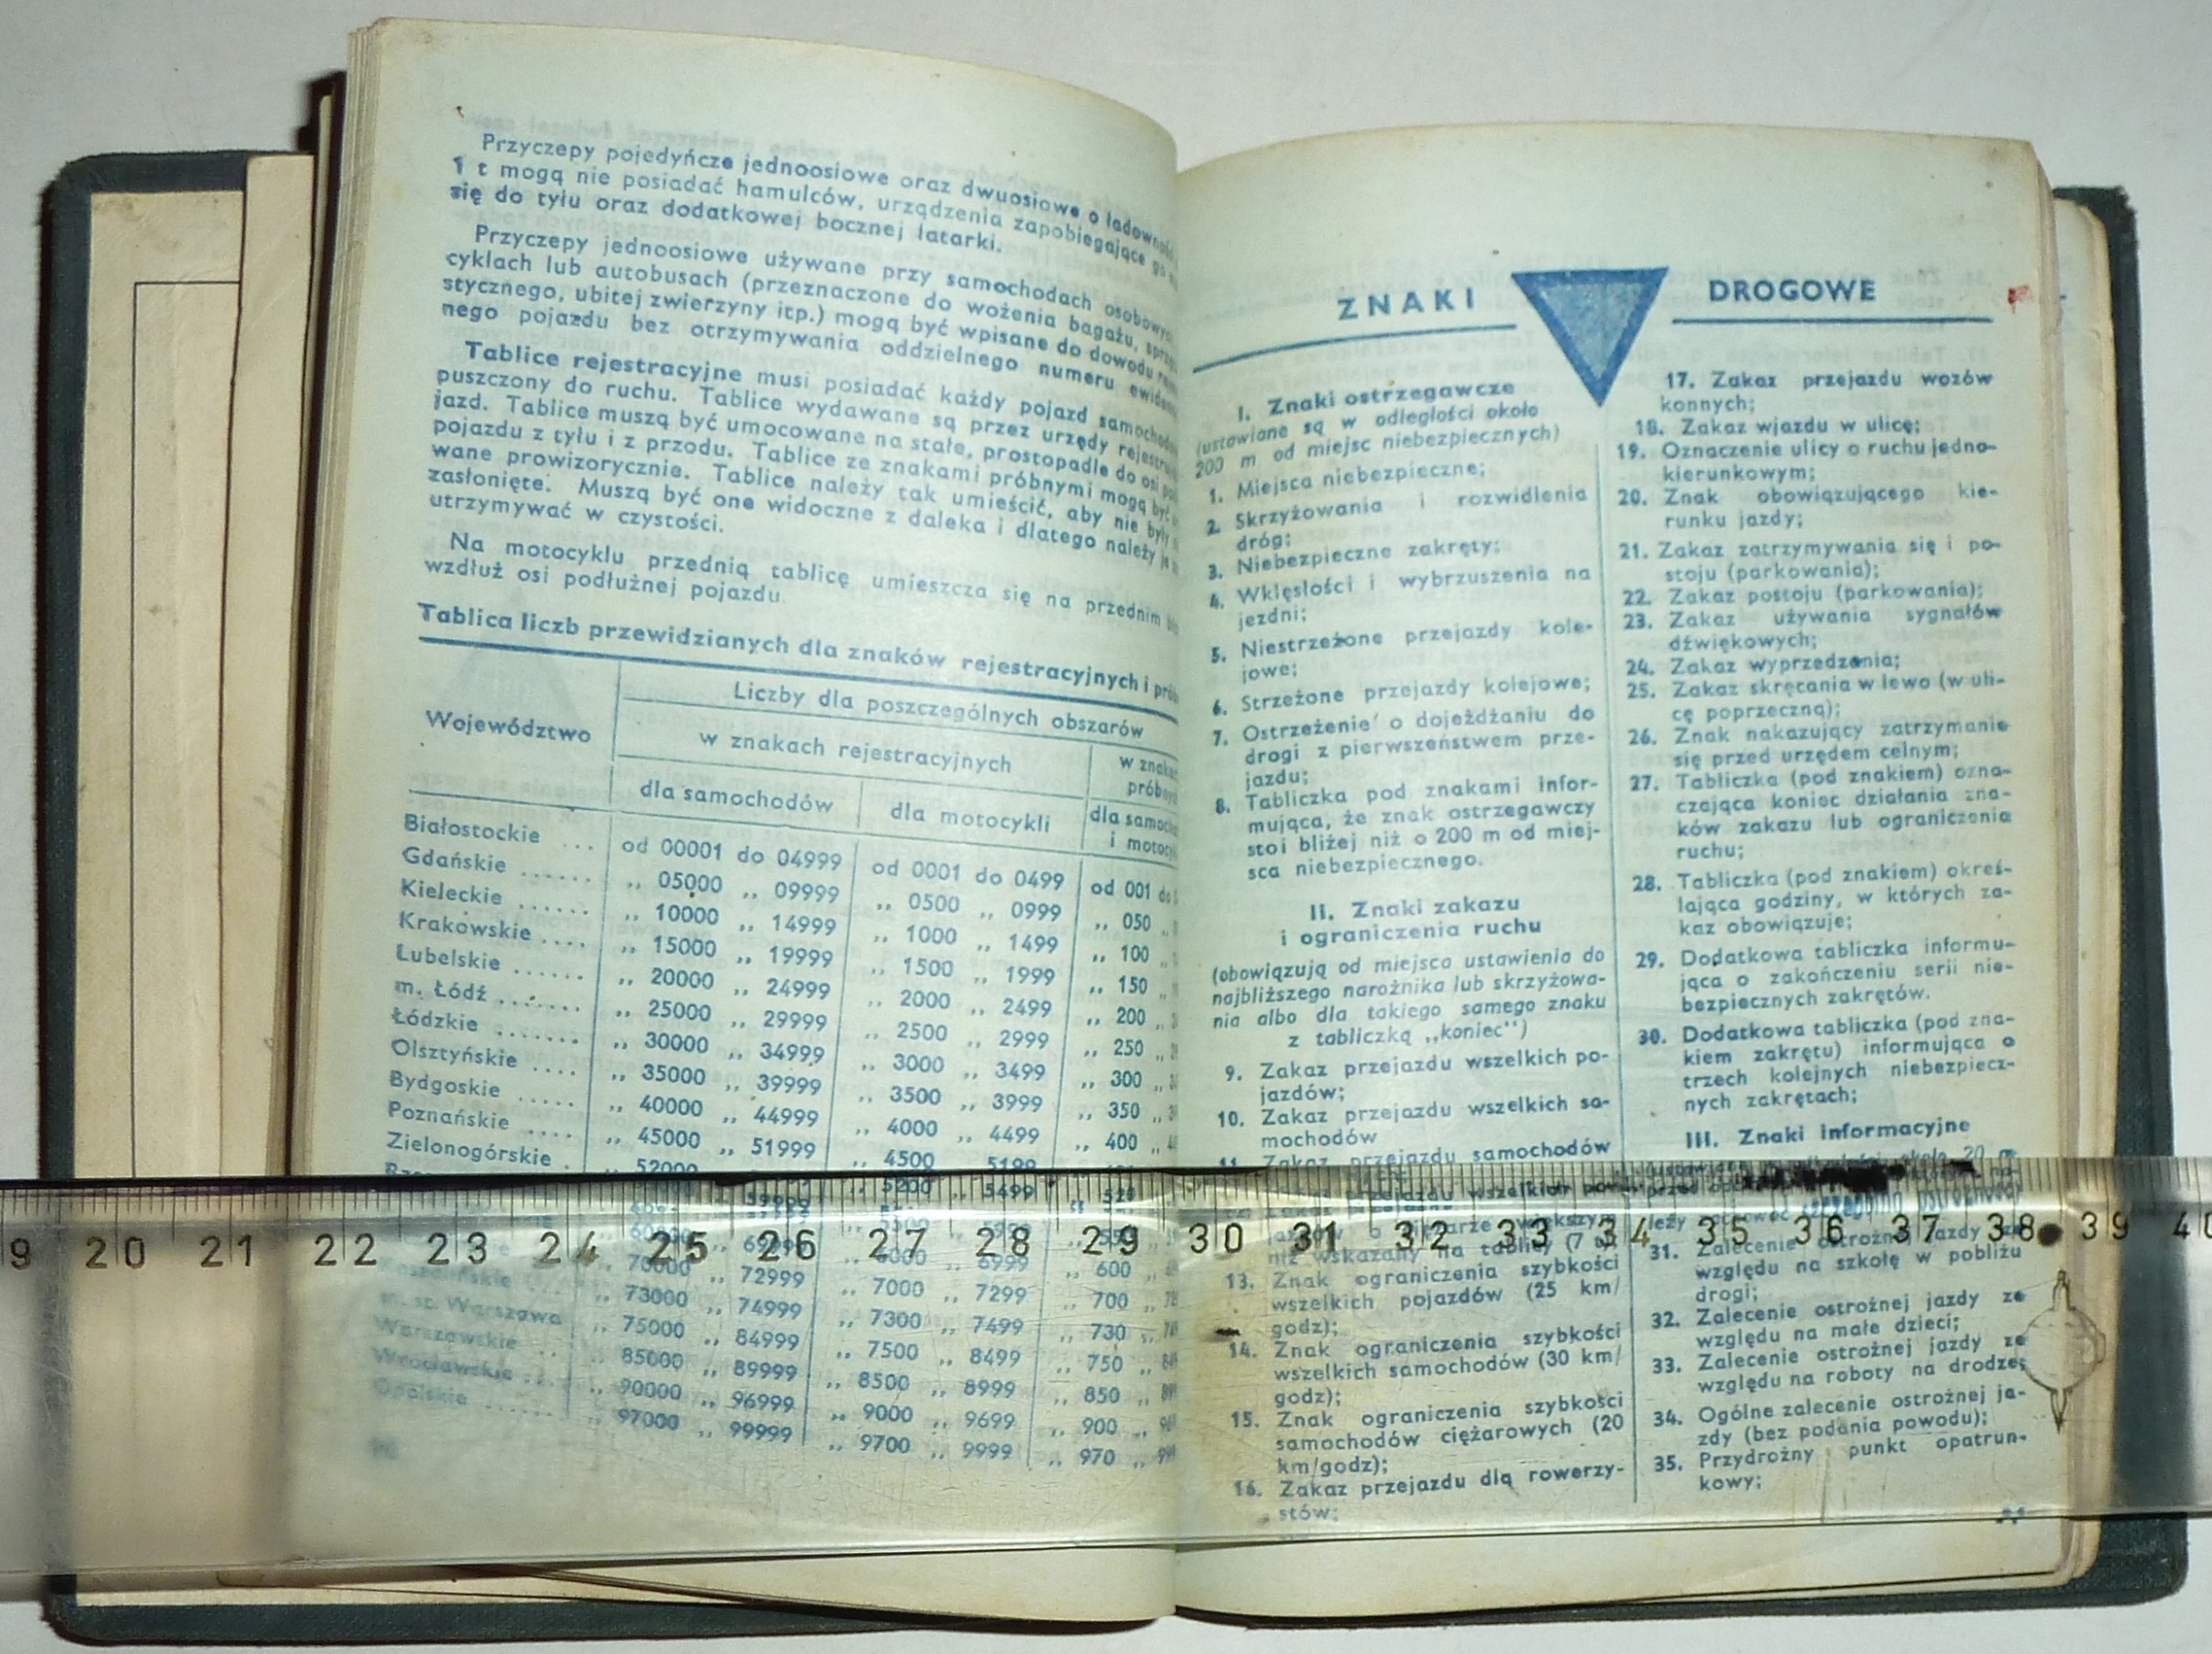 Przyczepy pojedyńcze jednoosiowe oraz dwuosiowe o
1 t mogą nie posiadać hamulców, urządzenia zapobiegające
się do tyłu oraz dodatkowej bocznej latarki.
Przyczepy jednoosiowe używane przy samochodach
cyklach lub autobusach (przeznaczone do wożenia bagażu,
stycznego, ubitej zwierzyny itp.) mogą być wpisane do dowodu
nego pojazdu bez otrzymywania oddzielnego numeru
Tablice rejestracyjne musi posiadać każdy pojazd
puszczony do ruchu. Tablice wydawane są przez urzędy
jazd. Tablice muszą być umocowane na stałe, prostopadle do osi
pojazdu z tyłu i z przodu. Tablice ze znakami próbnymi mogą być
wane prowizorycznie. Tablice należy tak umieścić, aby nie były
zasłonięte. Muszą być one widoczne z daleka i dlatego należy je
utrzymywać w czystości.
Na motocyklu przednią tablicę umieszcza się na przednim
wzdłuż osi podłużnej pojazdu.
Tablica liczb przewidzianych dla znaków rejestracyjnych i
Województwo
Liczby dla poszczególnych obszarów
w znakach rejestracyjnych
dla samochodów
dla motocykli
i
Białostockie ... od 00001 do 04999 od 0001 do 0499 od 001 do
Gdańskie ...... „ 05000 „ 09999 „ 0500 „ 0999 „ 050 „
Kieleckie ...... „ 10000 „ 14999 „ 1000 „ 1499 „ 100 „
Krakowskie .... „ 15000 „ 19999 „ 1500 „ 1999 „ 150 „
Lubelskie ...... „ 20000 „ 24999 „ 2000 „ 2499 „ 200 „
m. Łódź ....... „ 25000 „ 29999 „ 2500 „ 2999 „ 250 „
Łódzkie ....... „ 30000 „ 34999 „ 3000 „ 3499 „ 300 „
Olsztyńskie .... „ 35000 „ 39999 „ 3500 „ 3999 „ 350 „
Bydgoskie ..... „ 40000 „ 44999 „ 4000 „ 4499 „ 400 „
Poznańskie .... „ 45000 „ 51999 „ 4500 5199
Zielonogórskie . „ 52000 „ 5200 „ 5499 „ 520
„ 70000 „ 72999 „ 7000 „ 7299 „ 700 „
„ 73000 „ 74999 „ 7300 „ 7499 „ 730 „
m. st. Warszawa „ 75000 „ 84999 „ 7500 „ 8499 „ 750 „
Warszawskie .. „ 85000 „ 89999 „ 8500 „ 8999 „ 850 „
Wrocławskie ... „ 90000 „ 96999 „ 9000 „ 9699 „ 900 „
Opolskie ...... „ 97000 „ 99999 „ 9700 „ 9999 „ 970 „
ZNAKI DROGOWE
I. Znaki ostrzegawcze
(ustawiane są w odległości około
200 m od miejsc niebezpiecznych)
1. Miejsca niebezpieczne;
2. Skrzyżowania i rozwidlenia
dróg;
3. Niebezpieczne zakręty;
4. Wklęsłości i wybrzuszenia na
jezdni;
5. Niestrzeżone przejazdy kole-
jowe;
6. Strzeżone przejazdy kolejowe;
7. Ostrzeżenie o dojeżdżaniu do
drogi z pierwszeństwem prze-
jazdu;
8. Tabliczka pod znakami infor-
mująca, że znak ostrzegawczy
stoi bliżej niż o 200 m od miej-
sca niebezpiecznego.
II. Znaki zakazu
i ograniczenia ruchu
(obowiązują od miejsca ustawienia do
najbliższego narożnika lub skrzyżowa-
nia albo dla takiego samego znaku
z tabliczką „koniec")
9. Zakaz przejazdu wszelkich po-
jazdów;
10. Zakaz przejazdu wszelkich sa-
mochodów
11. Zakaz przejazdu samochodów
niż wskazany na tablicy (7 t);
13. Znak ograniczenia szybkości
wszelkich pojazdów (25 km/
godz);
14. Znak ograniczenia szybkości
wszelkich samochodów (30 km/
godz);
15. Znak ograniczenia szybkości
samochodów ciężarowych (20
km/godz);
16. Zakaz przejazdu dla rowerzy-
stów;
17. Zakaz przejazdu wozów
konnych;
18. Zakaz wjazdu w ulicę;
19. Oznaczenie ulicy o ruchu jedno-
kierunkowym;
20. Znak obowiązującego kie-
runku jazdy;
21. Zakaz zatrzymywania się i po-
stoju (parkowania);
22. Zakaz postoju (parkowania);
23. Zakaz używania sygnałów
dźwiękowych;
24. Zakaz wyprzedzania;
25. Zakaz skręcania w lewo (w uli-
cę poprzeczną);
26. Znak nakazujący zatrzymanie
się przed urzędem celnym;
27. Tabliczka (pod znakiem) ozna-
czająca koniec działania zna-
ków zakazu lub ograniczenia
ruchu;
28. Tabliczka (pod znakiem) okreś-
lająca godziny, w których za-
kaz obowiązuje;
29. Dodatkowa tabliczka informu-
jąca o zakończeniu serii nie-
bezpiecznych zakrętów.
30. Dodatkowa tabliczka (pod zna-
kiem zakrętu) informująca o
trzech kolejnych niebezpiecz-
nych zakrętach;
III. Znaki informacyjne
31. Zalecenie ostrożnej jazdy ze
względu na szkołę w pobliżu
drogi;
32. Zalecenie ostrożnej jazdy ze
względu na małe dzieci;
33. Zalecenie ostrożnej jazdy ze
względu na roboty na drodze;
34. Ogólne zalecenie ostrożnej ja-
zdy (bez podania powodu);
35. Przydrożny punkt opatrun-
kowy;
20 21 22 23 24 25 26 27 28 29 30 31 32 33 34 35 36 37 38 39